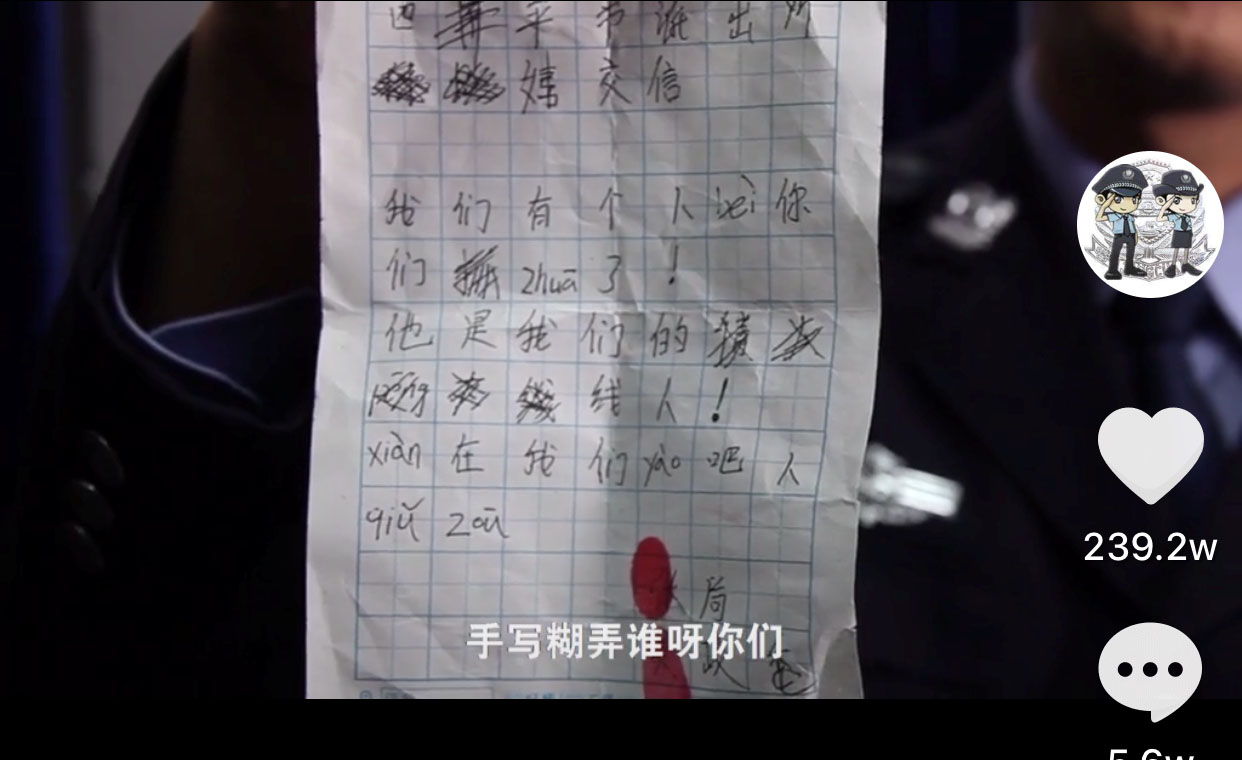 四 平 市 派 出 所
嬉 交 信
我 们 有 个 人 bèi 你
们 zhuā 了 ！
他 是 我 们 的
线 人 ！
xiàn 在 我 们 yào 吧 人
qiǔ zoū
局
手写糊弄谁呀你们
239.2w
5.6w